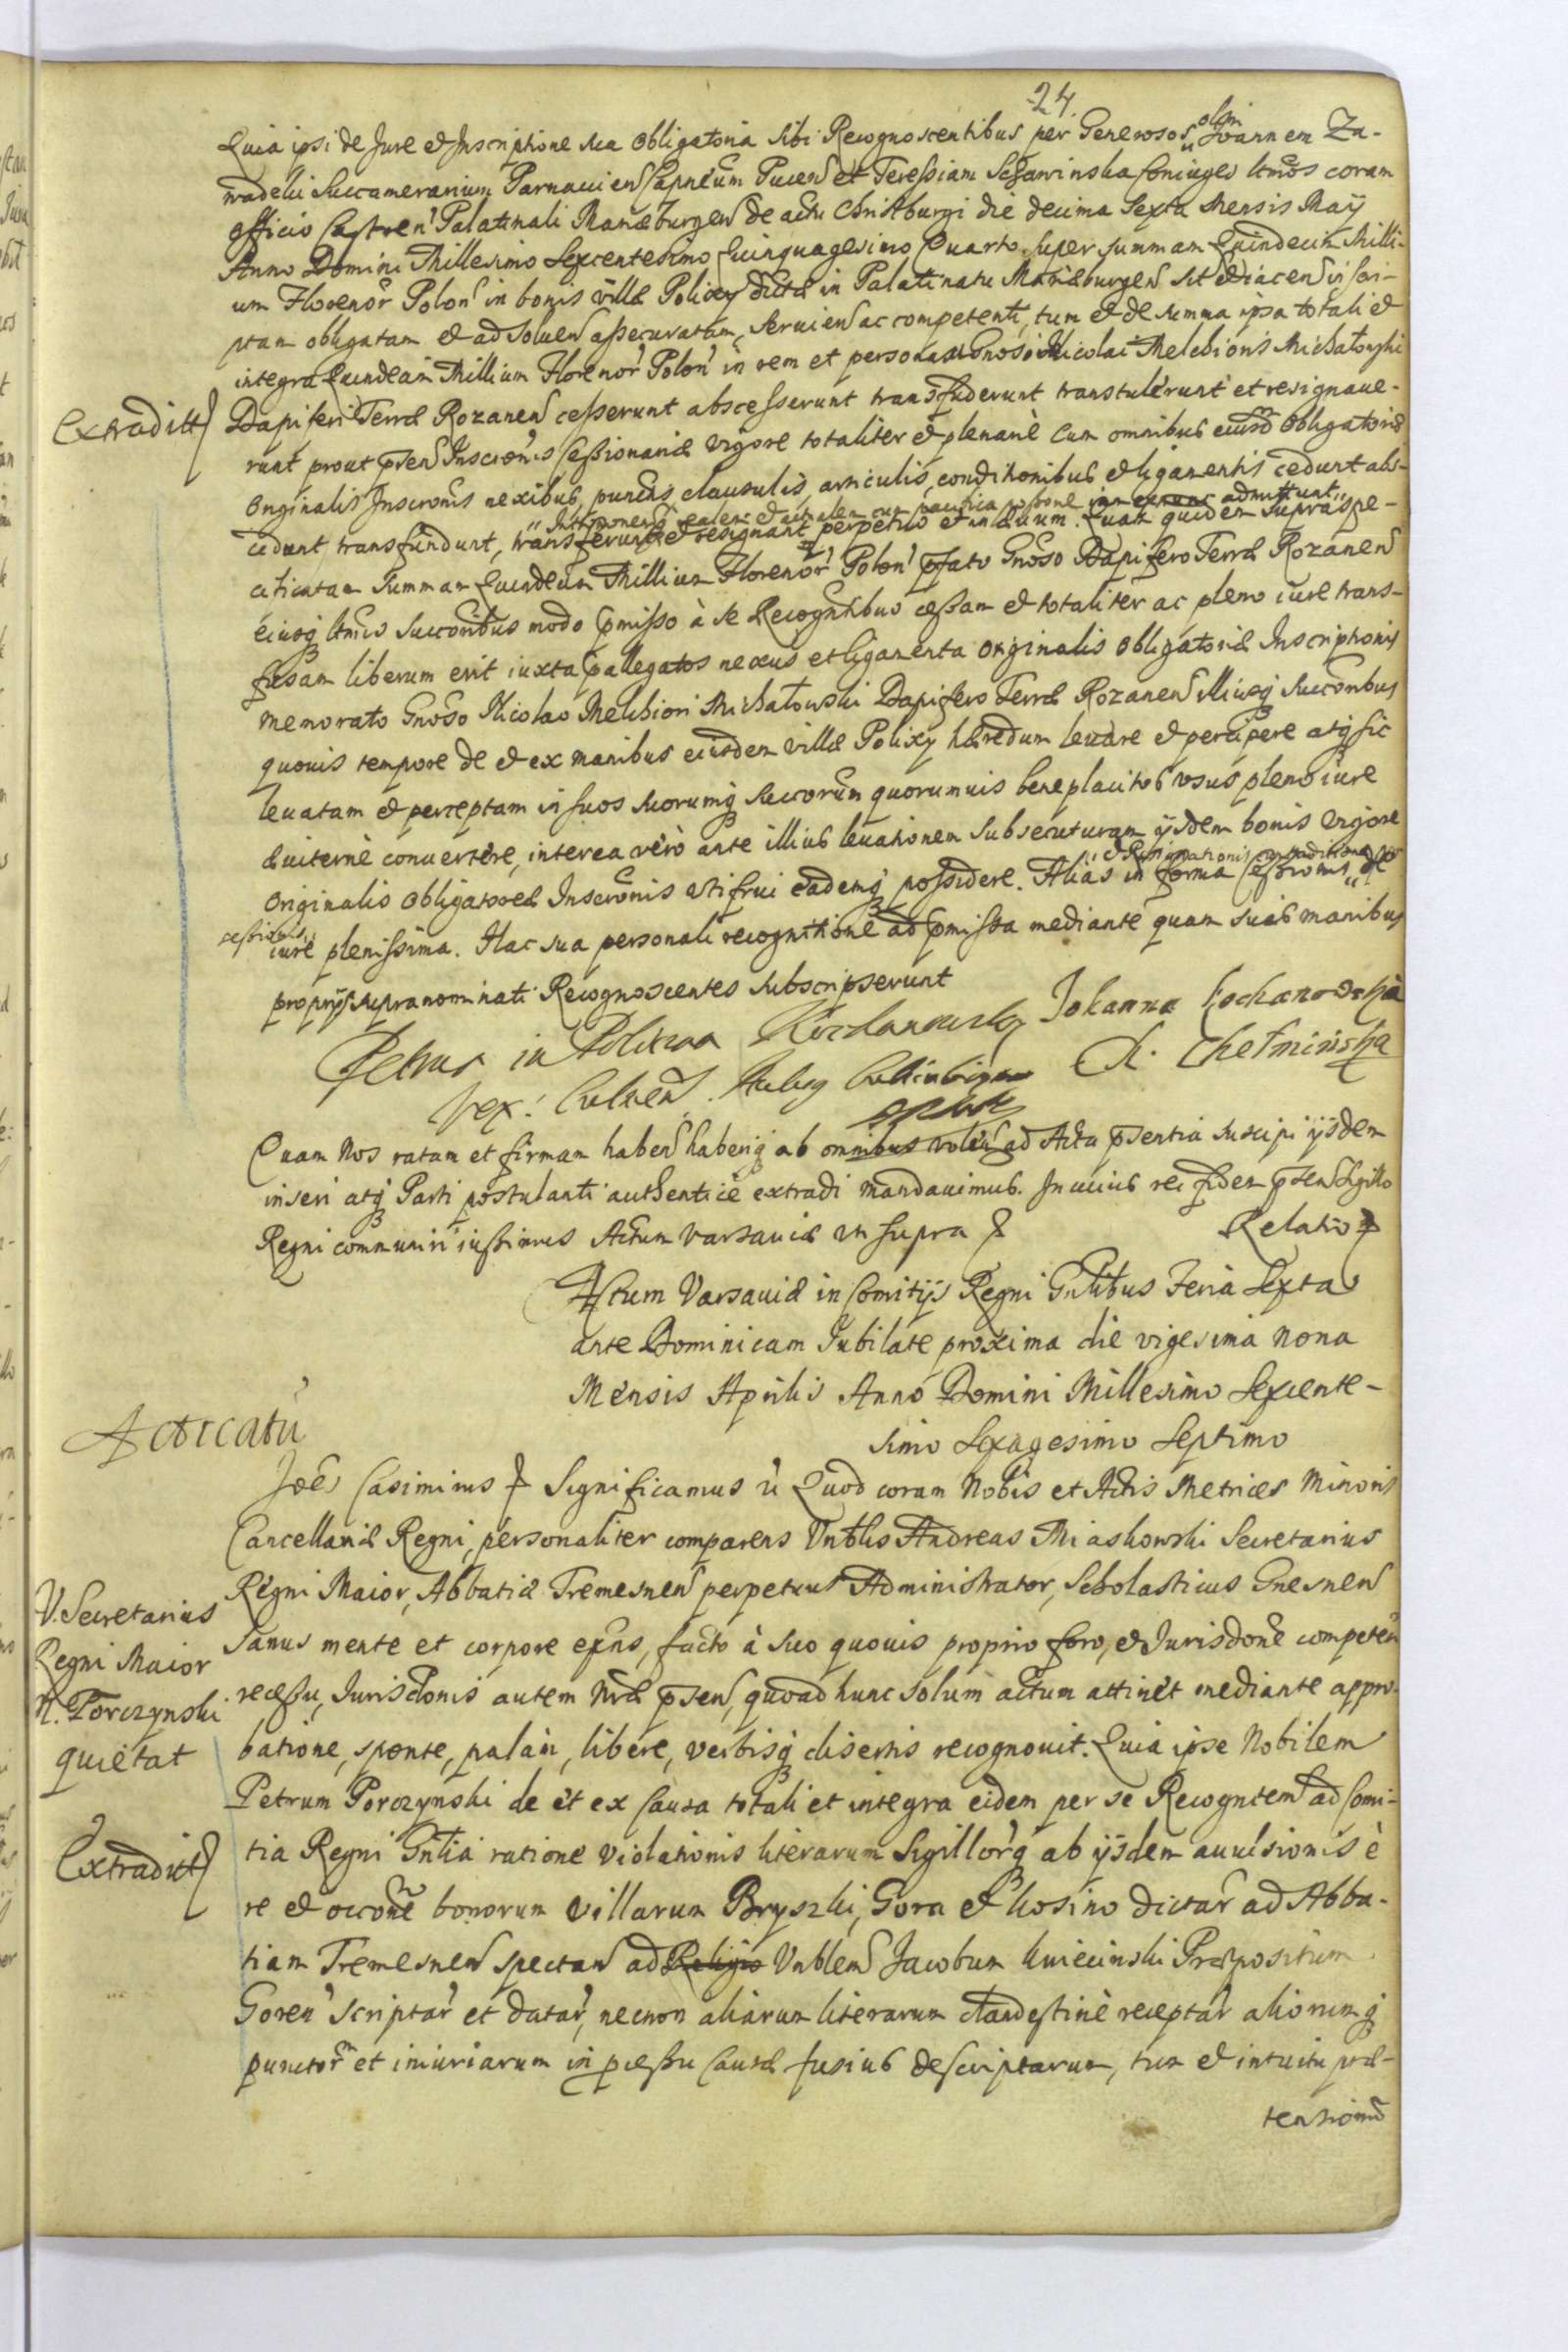 24.
Quia ipsi de Jure et Inscriptione sua obligatoria sibi Recognoscentibus per Generosos „olim Joannem Za-
wadzki Succamerarium Parnavien Capneum Pucen et Teressiam Sczawinska Coniuges ltmos coram
officio Castren Palatinali Mariæburgen de actu Christburgi die decima Sexta Mensis Maij
Anno Domini Millesimo Sexcentesimo Quinquagesimo Quarto super summam Quindecim Milli-
um Florenor Polon in bonis villæ Polixy dictæ in Palatinatu Mariæburgen sit et iacen inscri-
ptam obligatam et ad soluen assecuratam, seruien ac competenti, tum et de summa ipsa totali et
integra Quindecim Millium Florenor Polon in rem et personam Gnosi Nicolai Melchioris Michałowski
Extraditt
Dapiferi Terræ Rozanen cesserunt abscesserunt transfuderunt transtulerunt et resignaue-
runt prout pnsen Inscronis Cessionariæ vigore totaliter et plenariè cum omnibus eiusd obligatoriæ
originalis Inscronis nexibus, punctis, clausulis, articulis, conditionibus et ligamentis cedunt abs-
cedunt transfundunt, transferunt et resignant perpetuo et in æuum. Quam quidem supraspe-
„Intromonem realem et actualem cum pacifica possone iam exnunc admittunt„
cificatam summam Quindecim Millium Florenor Polon pfato Gnoso Dapifero Terræ Rozanen
eiusq ltmis succoribus modo pmisso à se Recogntibus cessam et totaliter ac pleno iure trans-
fusam liberum erit iuxta pallegatos nexus et ligamenta originalis obligatoriæ Inscriptionis
memorato Gnoso Nicolao Melchiori Michałowski Dapifero Terræ Rozanen illiusq succoribus
quouis tempore de et ex manibus eiusdem villæ Polixy hæredum leuare et percipere atq sic
leuatam et perceptam in suos suorumq succorum quorumuis beneplacitos vsus pleno iure
æuiternè conuertere, interea verò ante illius leuationem subsecuturam ijsdem bonis vigore
originalis obligatoriæ Inscronis vtifrui eademq possidere. Aliàs in forma Cessionis „et Resignationis
cessionis„ iure plenissima. Hac sua personali recognitione ad pmissa mediante quam suis manibus
proprijs supranominati Recognoscentes subscripserunt
Petrus in Polixna Kochanowsky Johanna Kochanowska
Vex: Culmen. D. Chełmińska
Quam Nos ratam et firmam haben haberiq ab omnibus volen ad Acta pnsentia suscipi ijsdem
inseri atq Parti postulanti authenticè extradi mandauimus. In cuius rei fidem pnsen Sigillo
Regni communiri iussimus Actum Varsauiæ vt supra Relatio
Actum Varsauiæ in Comitijs Regni Gnlibus Feria Sexta
ante Dominicam Jubilate proxima die vigesima nona
Mensis Aprilis Anno Domini Millesimo Sexcente-
simo Sexagesimo Septimo
Acticatu
Joes Casimirus Significamus ú Quod coram Nobis et Actis Metrices Minoris
Cancellariæ Regni, personaliter comparens Vnblis Andreas Miaskowski Secretarius
Regni Maior, Abbatiæ Tremesnen perpetuus Administrator, Scholasticus Gnesnen
V. Secretarius
Regni Maior
N. Porczynski
quietat
sanus mente et corpore exns, facto à suo quouis proprio foro, et Jurisdone competen
recessu, Jurisdonis autem Nræ pnsen, quoad hunc solùm actum attinet mediante appro-
batione, sponte, palàm, libere, verbisq disertis recognouit. Quia ipse Nobilem
Petrum Porczynski de et ex Causa totali et integra eidem per se Recogntem ad Comi-
Extraditt
tia Regni Gnlia ratione violationis literarum Sigillorq ab ijsdem auulsionis è
re et occone bonorum villarum Bryszki, Gora et Kosino dictar ad Abba-
tiam Tremesnen spectan ad Religio Vnblem Jacobum Kwiecinski Præpositum
Goren scriptar et datar, necnon aliarum literarum clandestinè receptar aliorumq
punctor et iniuriarum in pcessu Causæ fusius descriptarum, tum et intuitu præ-
tensionu